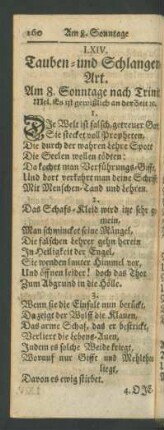 160 Am 8. Sonntage
LXIV.
Tauben- und Schlangen-
Art.
Am 8. Sonntage nach Trinit.
Mel. Es ist gewißlich an der Zeit ꝛc.
1.
DIe Welt ist falsch, getreuer Gott
Sie stecket voll Propheten,
Die durch der wahren Lehre Spott
Die Seelen wollen tödten:
Da kochet man Verführungs-Gifft,
Und dort verkehrt man deine Schrifft
Mit Menschen-Tand und Lehren.
2.
Das Schafs-Kleid wird itzt sehr ge-
mein,
Man schmincket seine Mängel,
Die falschen Lehrer gehn herein
In Heiligkeit der Engel,
Sie wenden lauter Himmel vor,
Und öffnen leider! doch das Thor
Zum Abgrund in die Hölle.
3.
Wenn sie die Einfalt nun berückt,
Da zeiget der Wolff die Klauen,
Das arme Schaf, das er bestrickt,
Verliert die Lebens-Auen,
Indem es solche Weide kriegt,
Worauf nur Gifft und Mehlthau
liegt,
Davon es ewig stirbet.